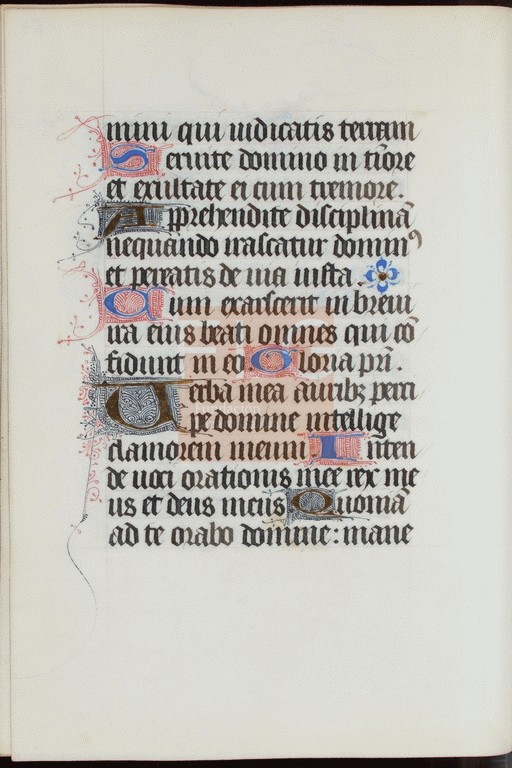 mini qui iudicatis terram
Seruite domino in tiōre
et exultate ei cum tremore.
Apprehendite disciplinā
nequando irascatur dominꝰ
et pereatis de uia iusta.
Cum exarserit in breui
ira eius beati omnes qui cō
fidunt in eo. Gloria pr̄i.
Uerba mea auribꝫ perci
pe domine intellige
clamorem meum Inten
de uoci orationis mee rex me
us et deus meus Quoniā
ad te orabo domine: mane